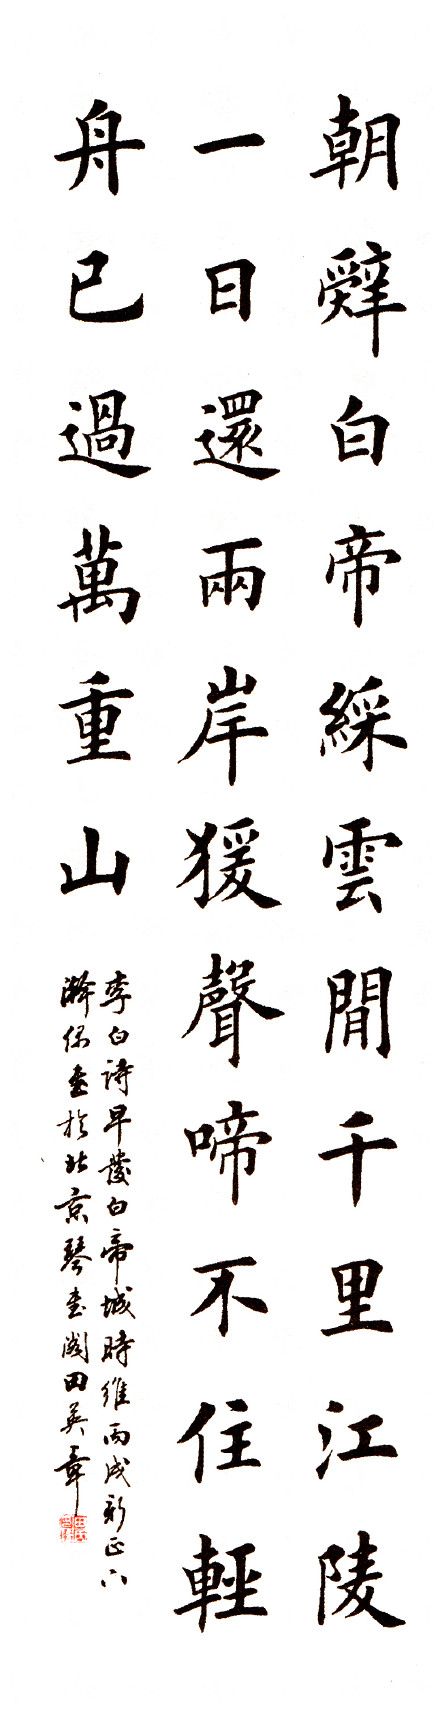 朝辤白帝綵雲間千里江陵
一日還兩岸猨聲啼不住輕
舟已過萬重山
李白詩早發白帝城時維丙戌新正下
澣你書於北京琴書閣田英章